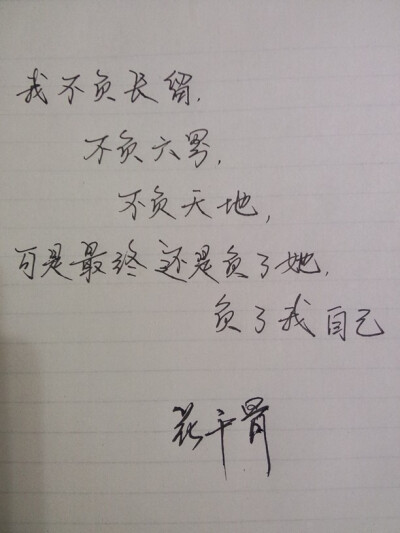 我不负长留,
不负六界,
不负天地,
可是最终还是负了她,
负了我自己
花千骨